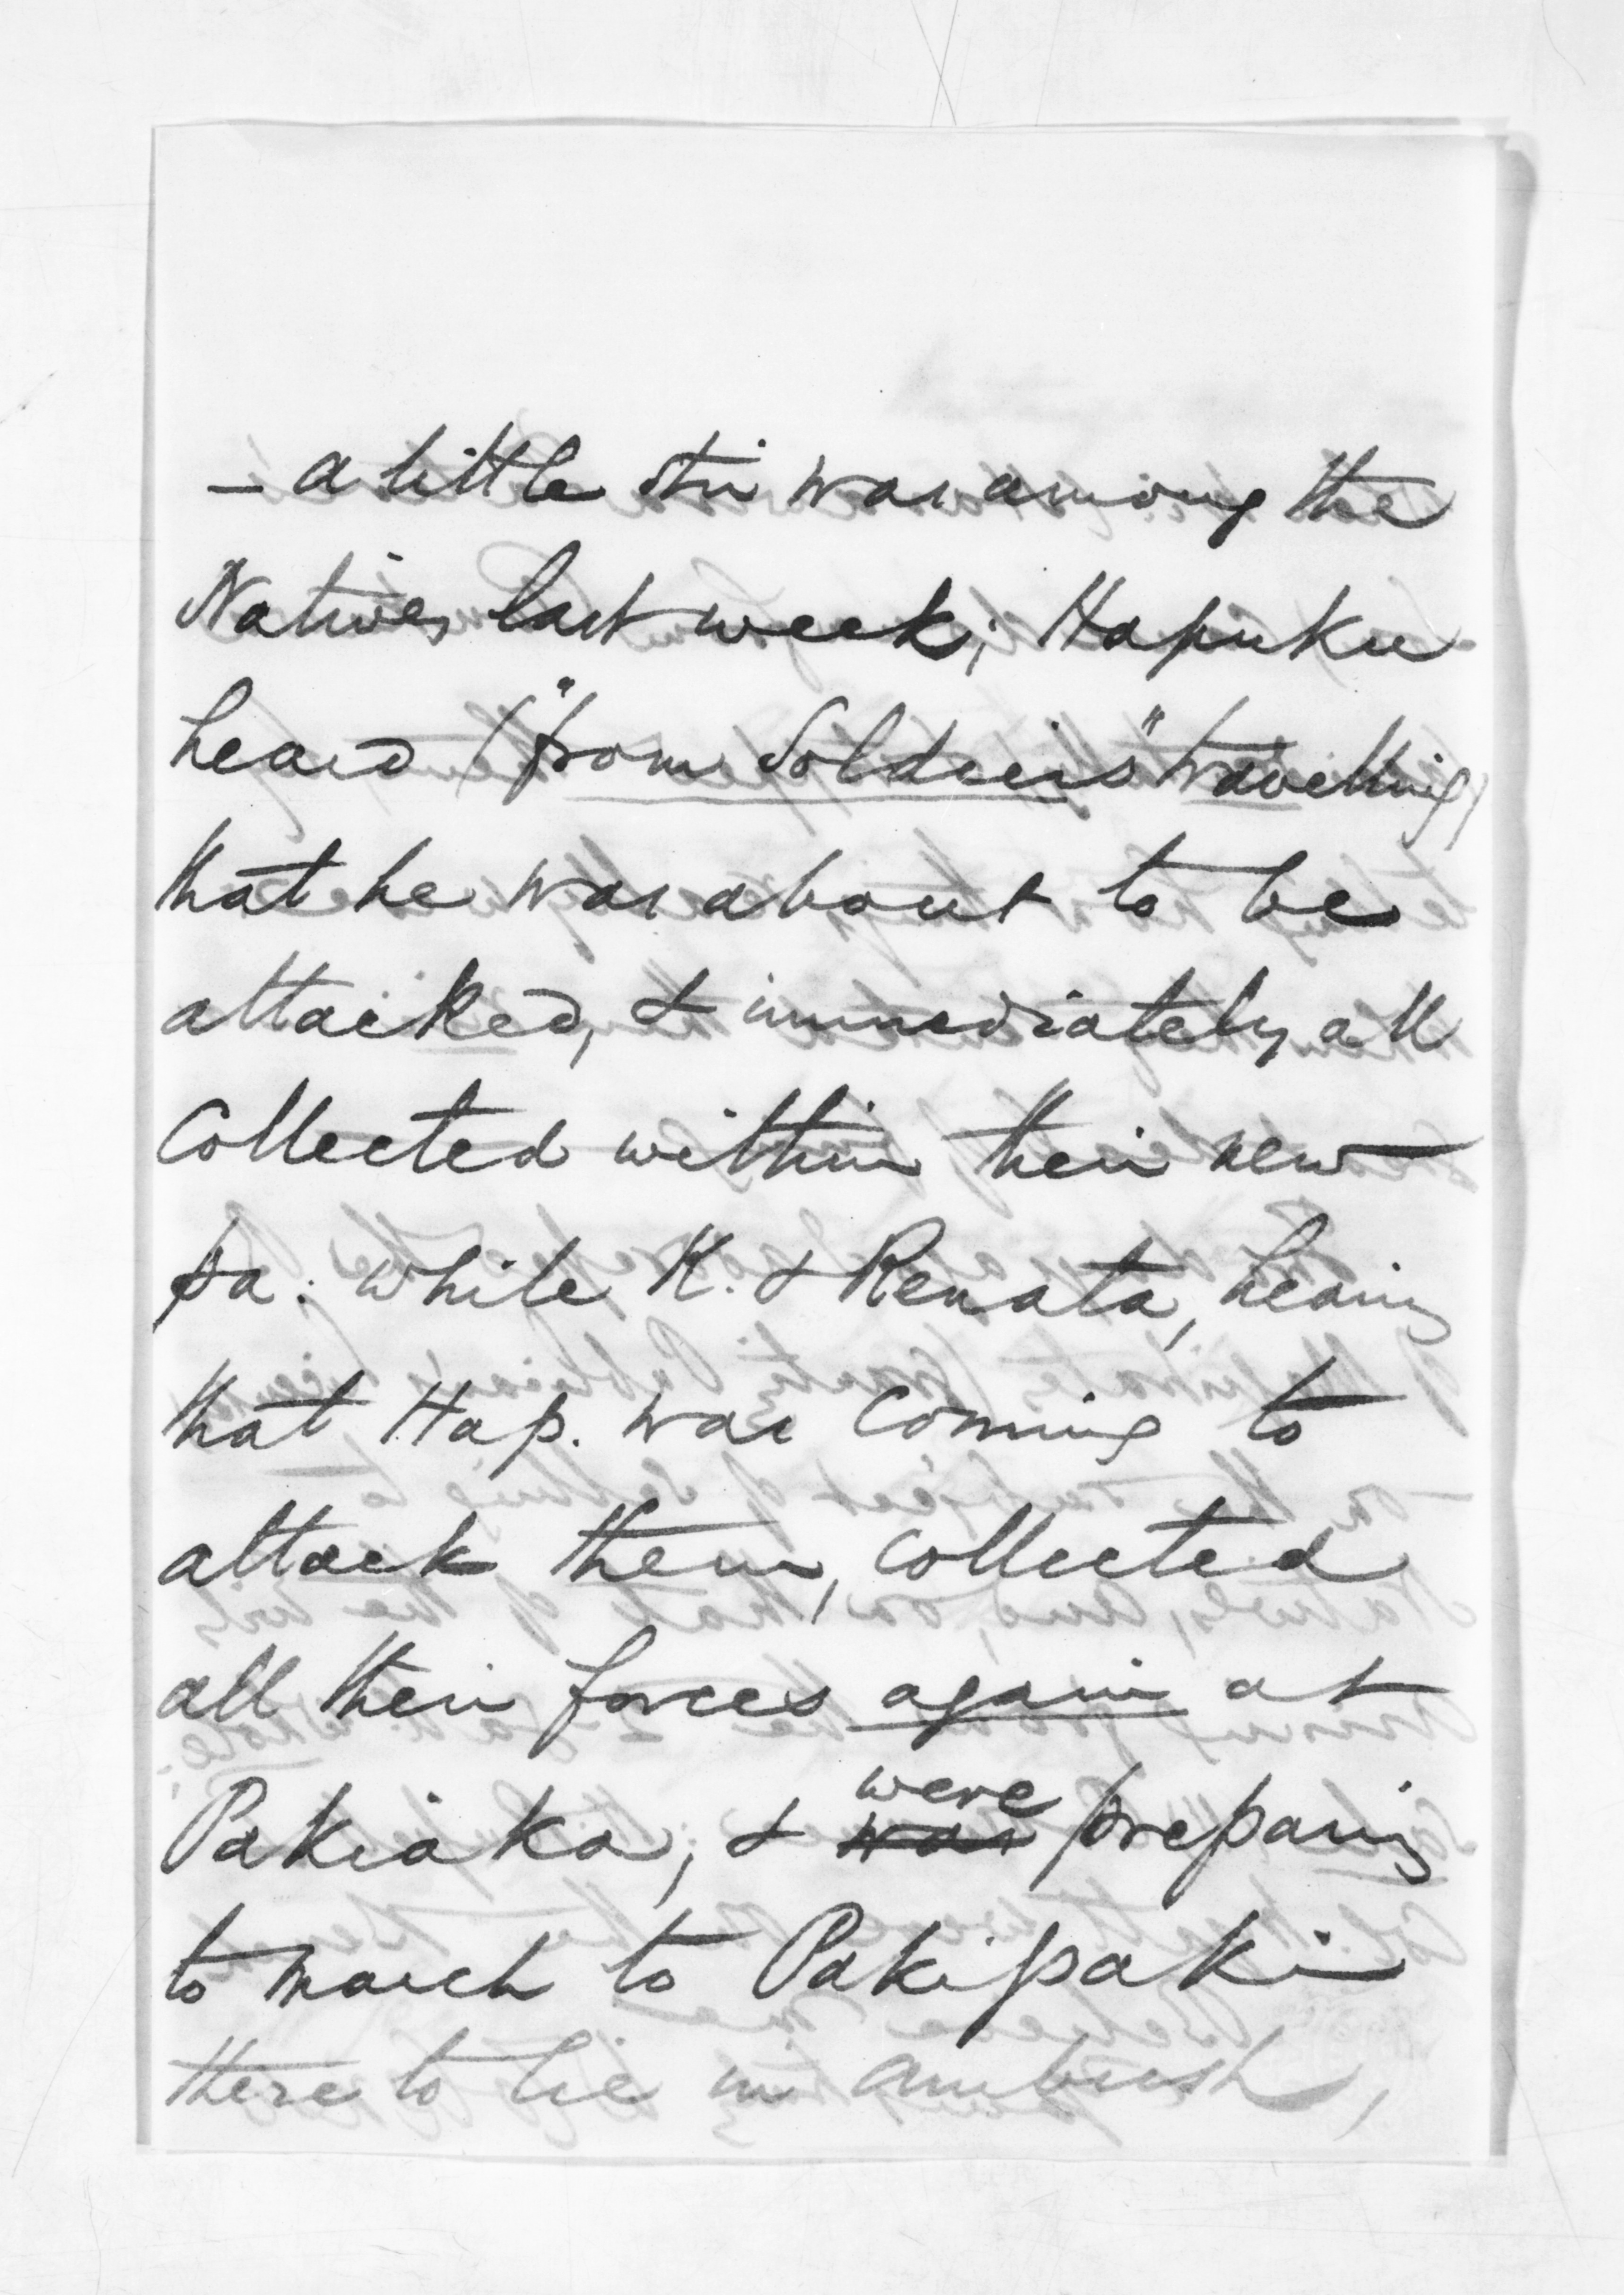 — a little stir was among the
Natives last week; Hapuku
heard ("from Soldiers" travelling)
that he was about to be
attacked, & immediately all
collected within their new
pa: while K. & Renata, hearing
that Hap. was coming to
attack them, collected
all their forces again at
Pakiaka; & were preparing
to march to Pakipaki
there to lie in ambush,